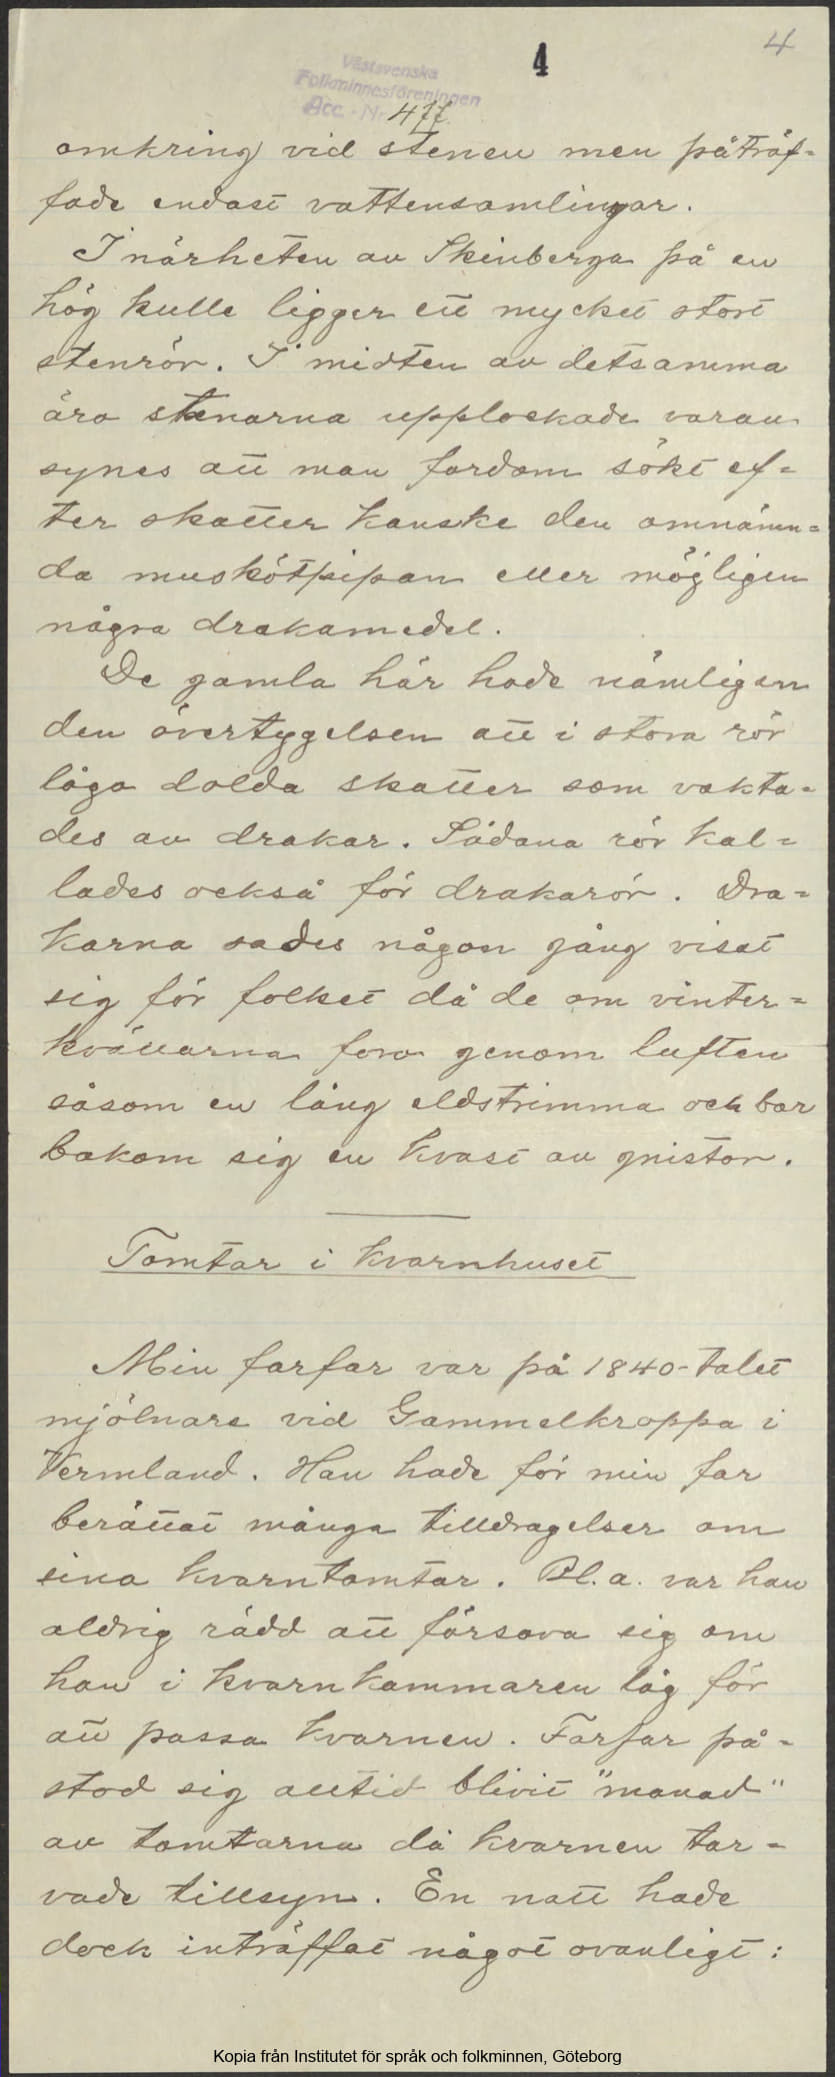 4
4
Västsvenska
Folkminnesföreningen
Acc. Nr. 477
omkring vid stenen men påträf=
fade endast vattensamlingar.
I närheten av Skinberga på en
hög kulle ligger ett mycket stort
stenrör. I midten av detsamma
äro stenarna upplockade varav
synes att man fordom sökt ef=
ter skatter kanske den omnämn=
da muskötpipan eller möjligen
några drakamedel.
De gamla här hade nämligen
den övertygelsen att i stora rör
lågo dolda skatter som vakta=
des av drakar. Sådana rör kal=
lades också för drakarör. Dra=
karna sades någon gång visat
sig för folket då de om vinter=
kvällarna foro genom luften
såsom en lång eldstrimma och bar
bakom sig en kvast av gnistor.
Tomtar i kvarnhuset
Min farfar var på 1840-talet
mjölnare vid Gammelkroppa i
Vermland. Han hade för min far
berättat många tilldragelser om
sina kvarntomtar. Bl.a. var han
aldrig rädd att försova sig om
han i kvarnkammaren låg för
att passa kvarnen. Farfar på=
stod sig alltid blivit "manad"
av tomtarna då kvarnen tar=
vade tillsyn. En natt hade
dock inträffat något ovanligt:
Kopia från Institutet för språk och folkminnen, Göteborg